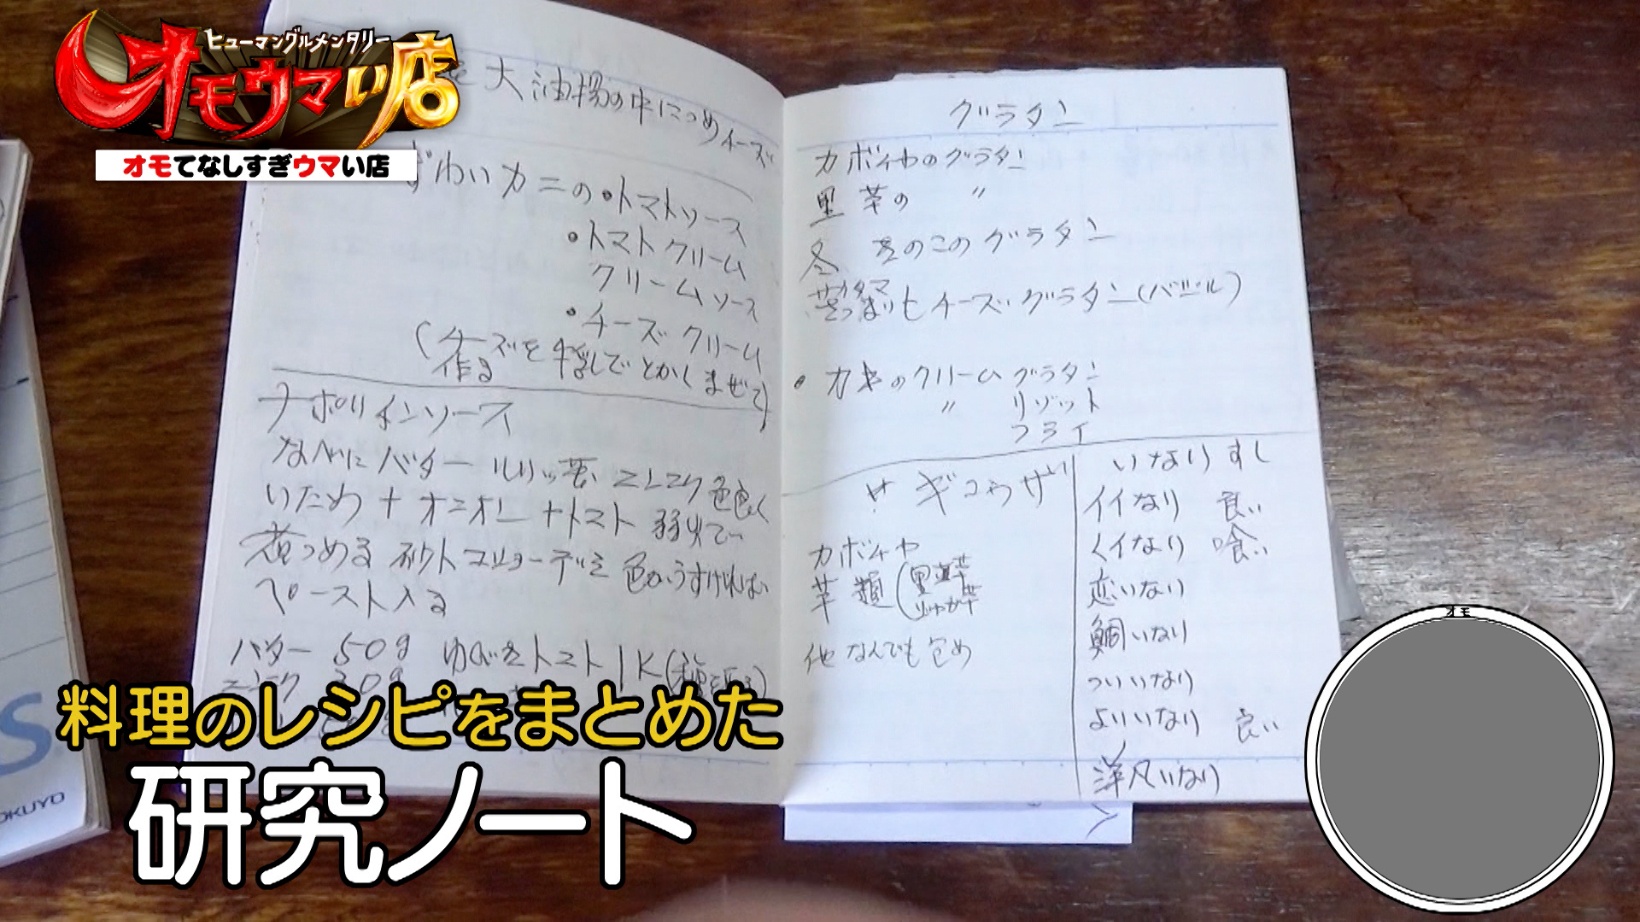 ヒューマングルメンタリー
オモウマい店
オモてなしすぎウマい店
大油揚の中につめチーズ
ずわいカニの・トマトソース
・トマトクリーム
クリームソース
・チーズクリーム
(チーズを牛乳でとかしまぜて
作る
ナポリタンソース
なべにバター
色良く
いため+オニオン+トマト 弱火で
煮つめる
色がうすければ
ペースト入る
バター 50g ゆびきトマト 1K
グラタン
カボチャのグラタン
里芋の 〃
冬 きのこのグラタン
チーズグラタン
・カキのクリームグラタン
〃 リゾット
フライ
ギョウザ
カボチャ
芋類(里芋
じゃが芋
他なんでも包め
いなりすし
イイなり 良い
くイなり 喰い
恋いなり
鯛いなり
ついいなり
よりいなり 良い
洋風いなり
料理のレシピをまとめた
研究ノート
オモ